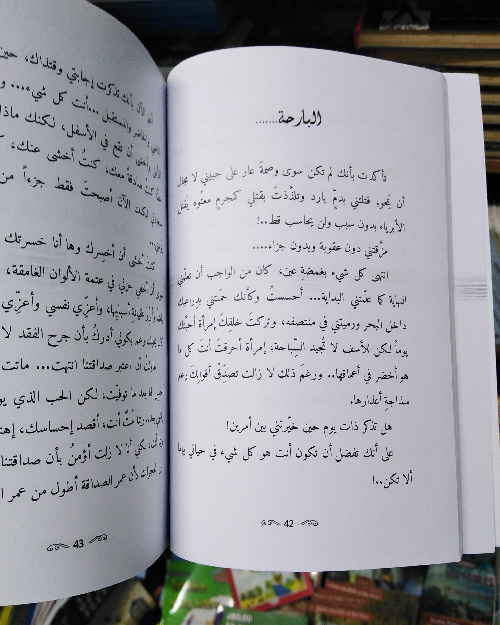 البارحة.......
تأكدت بأنك لم تكن سوى وصمة عار على جبيني لا مجال
أن يمحو، قتلتني بدمٍ بارد وتلذّذتَ بقتلي كمجرمٍ معتوه يقتل
الأبرياء بدون سبب ولن يحاسب قط..!
مزّقتني دون عقوبة وبدون جزاء.....
انتهى كل شيء بغمضةِ عين، كان من الواجب أن تعلّمني
النهاية كما علمتني البداية... أحسستُ وكأنك حملتني بذراعيك
داخل البحر ورميتني في منتصفه، وتركتَ خلفكَ إمرأة أحبتكَ
يوماً لكن للأسف لا تُجيد السّباحة، إمرأة أحرقتَ أنتَ كل ما
هو أخضر في أعماقها.. ورغمَ ذلك لا زالت تصدّقُ أقوالكَ رغم
سذاجةِ أعذارها.
هل تذكر ذات يوم حين خيّرتني بين أمرين!
على أنك تفضل أن تكون أنت هو كل شيء في حياتي يا إما
ألا تكن..!
42
بأنك تذكرت إجابتي وقتذاك، حين
والمستقبل ...أنت كل شيء....
أن تقع في الأسفل، لكنك ماذا
كنت صادقة معك، كنتُ أخشى عنك،
لكنك الآن أصبحتَ فقط جزءاً من
أن أخسرك وها أنا خسرتك
حزني في عتمة الألوان الغامقة،
وأعزّي نفسي وأعزّي
بكوني أدركُ بأن جرح الفقد لا
أعتبر صداقتنا انتهت... ماتت
بعد ما توفيت، لكن الحب الذي
أنت، أقصد إحساسك،
لا زلت أؤمنُ بأن صداقتنا
لأن عمر الصداقة أطول من عمر
43